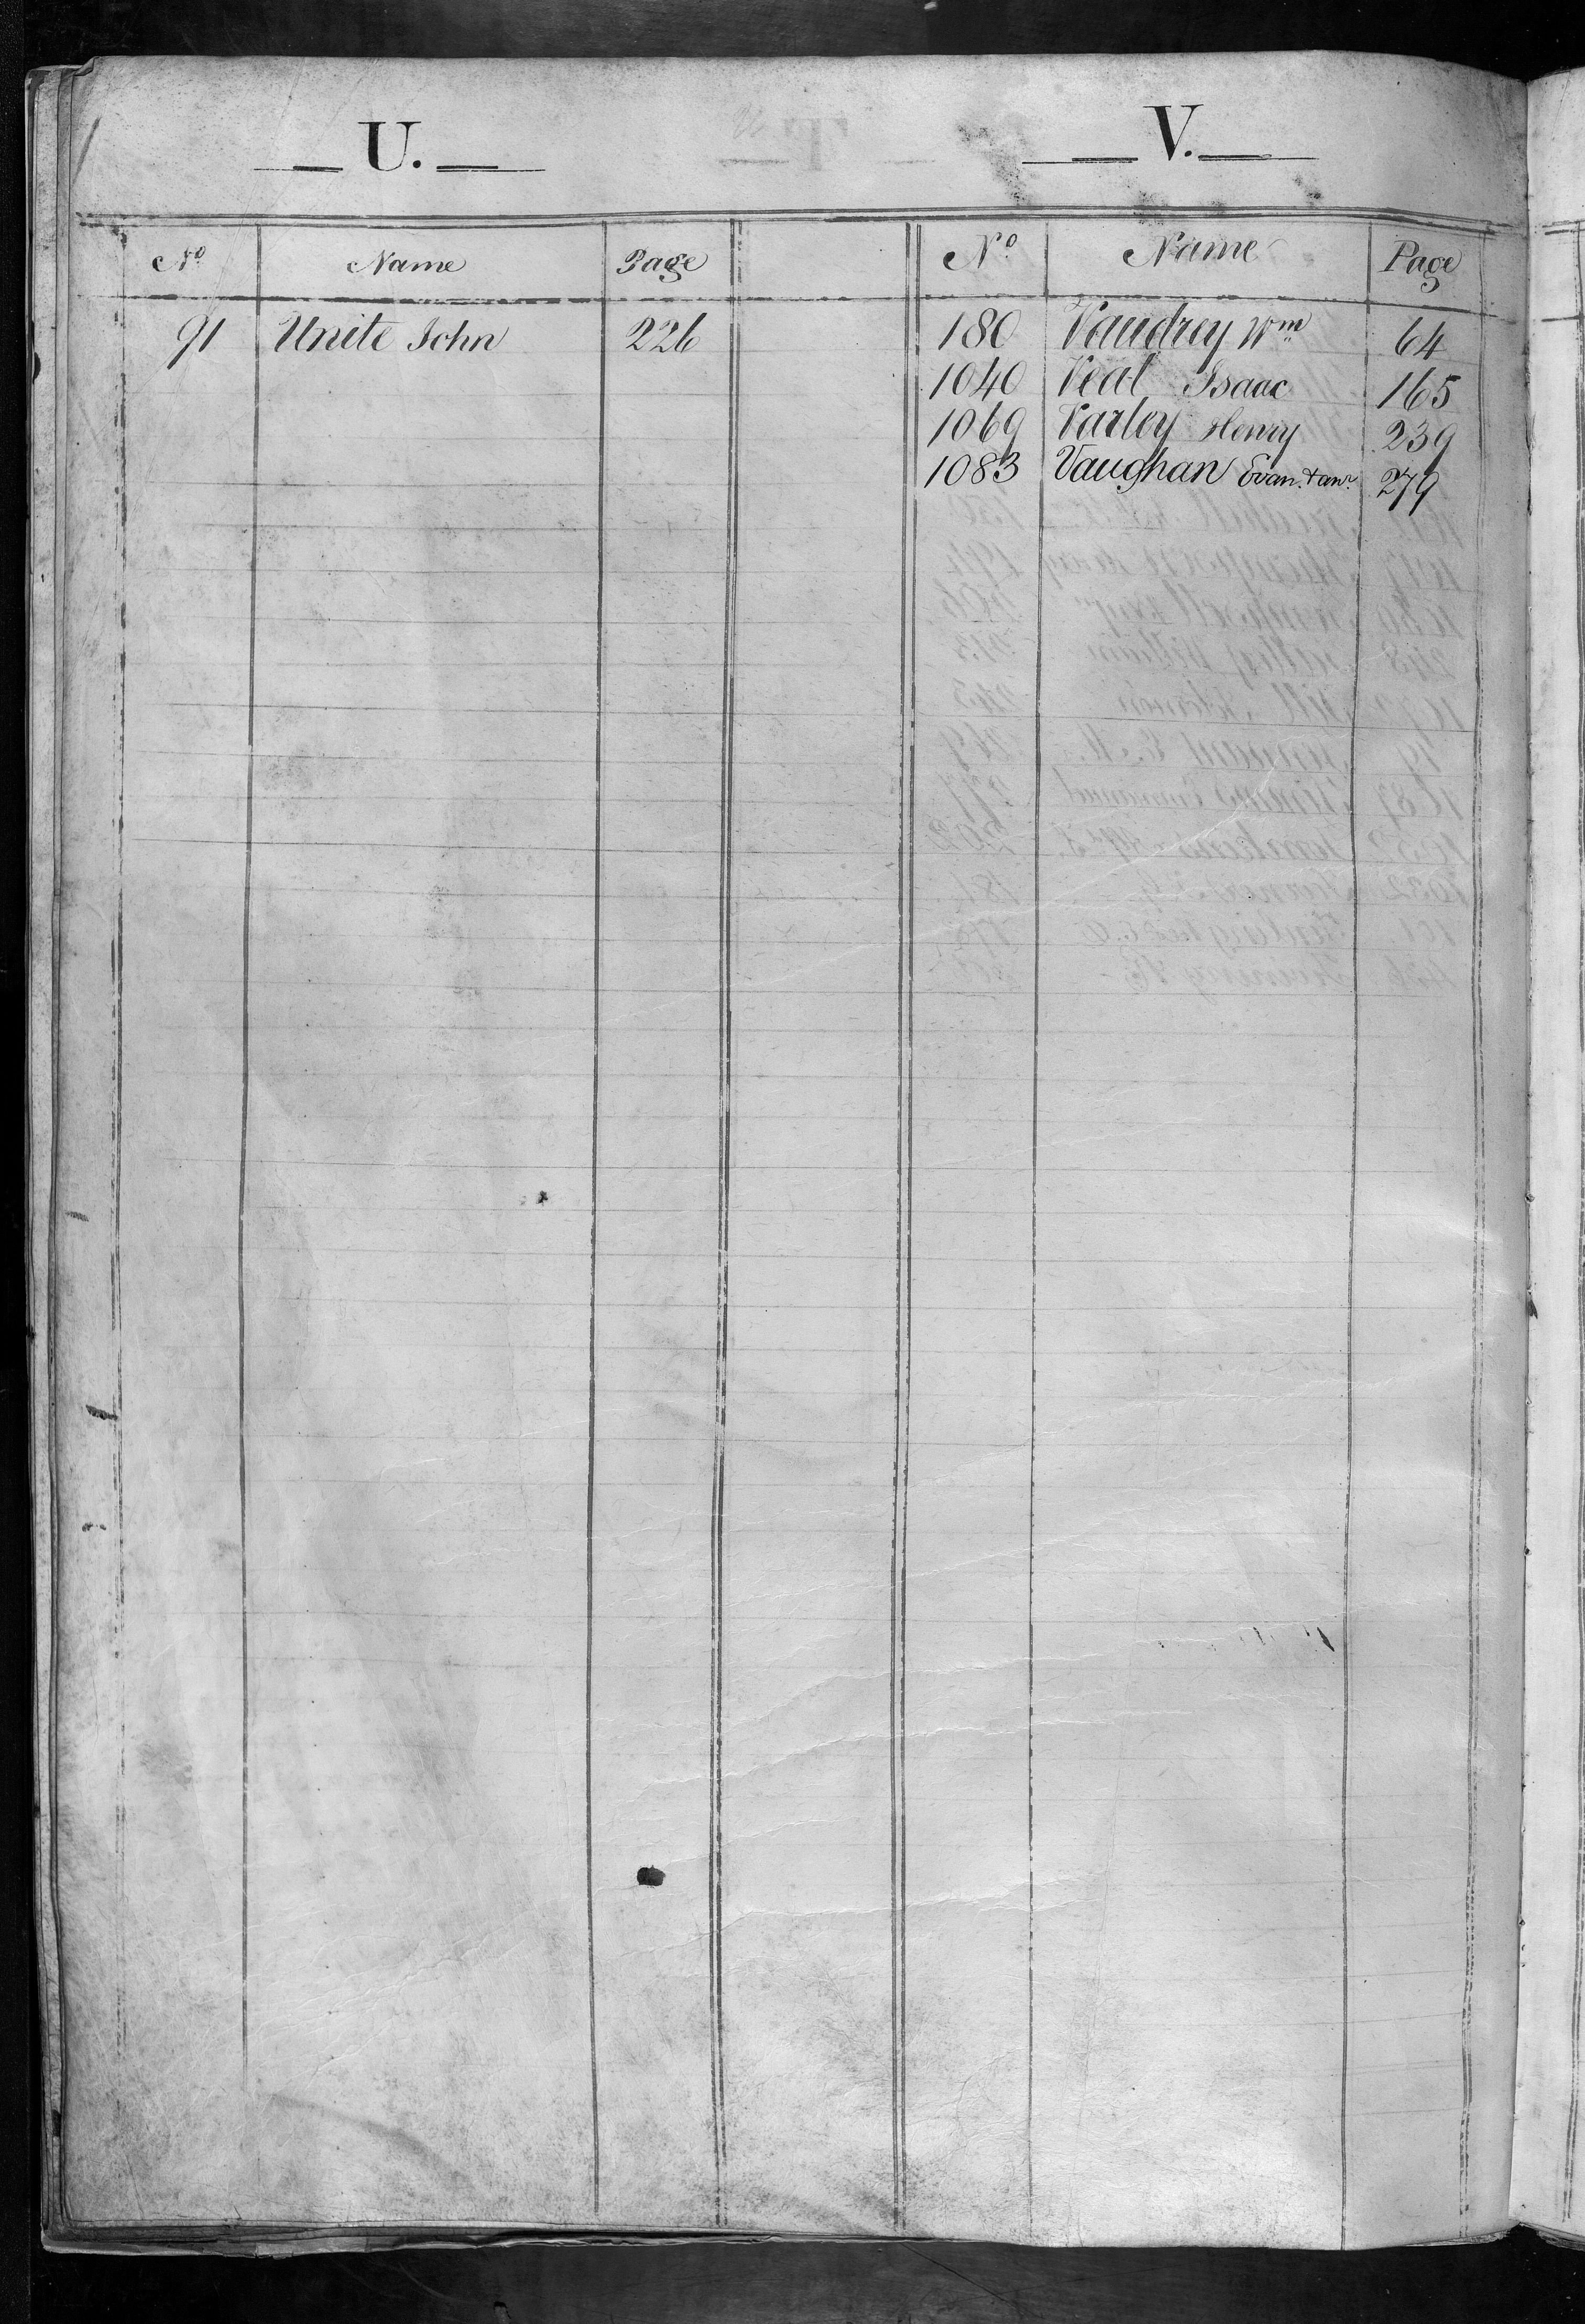 U. V.
No Name Page No Name Page
91 Unite John 226 180 Vaudrey Wm 64
1040 Veal Isaac 165
1069 Varley Henry 239
1083 Vaughan Evan & anr 279